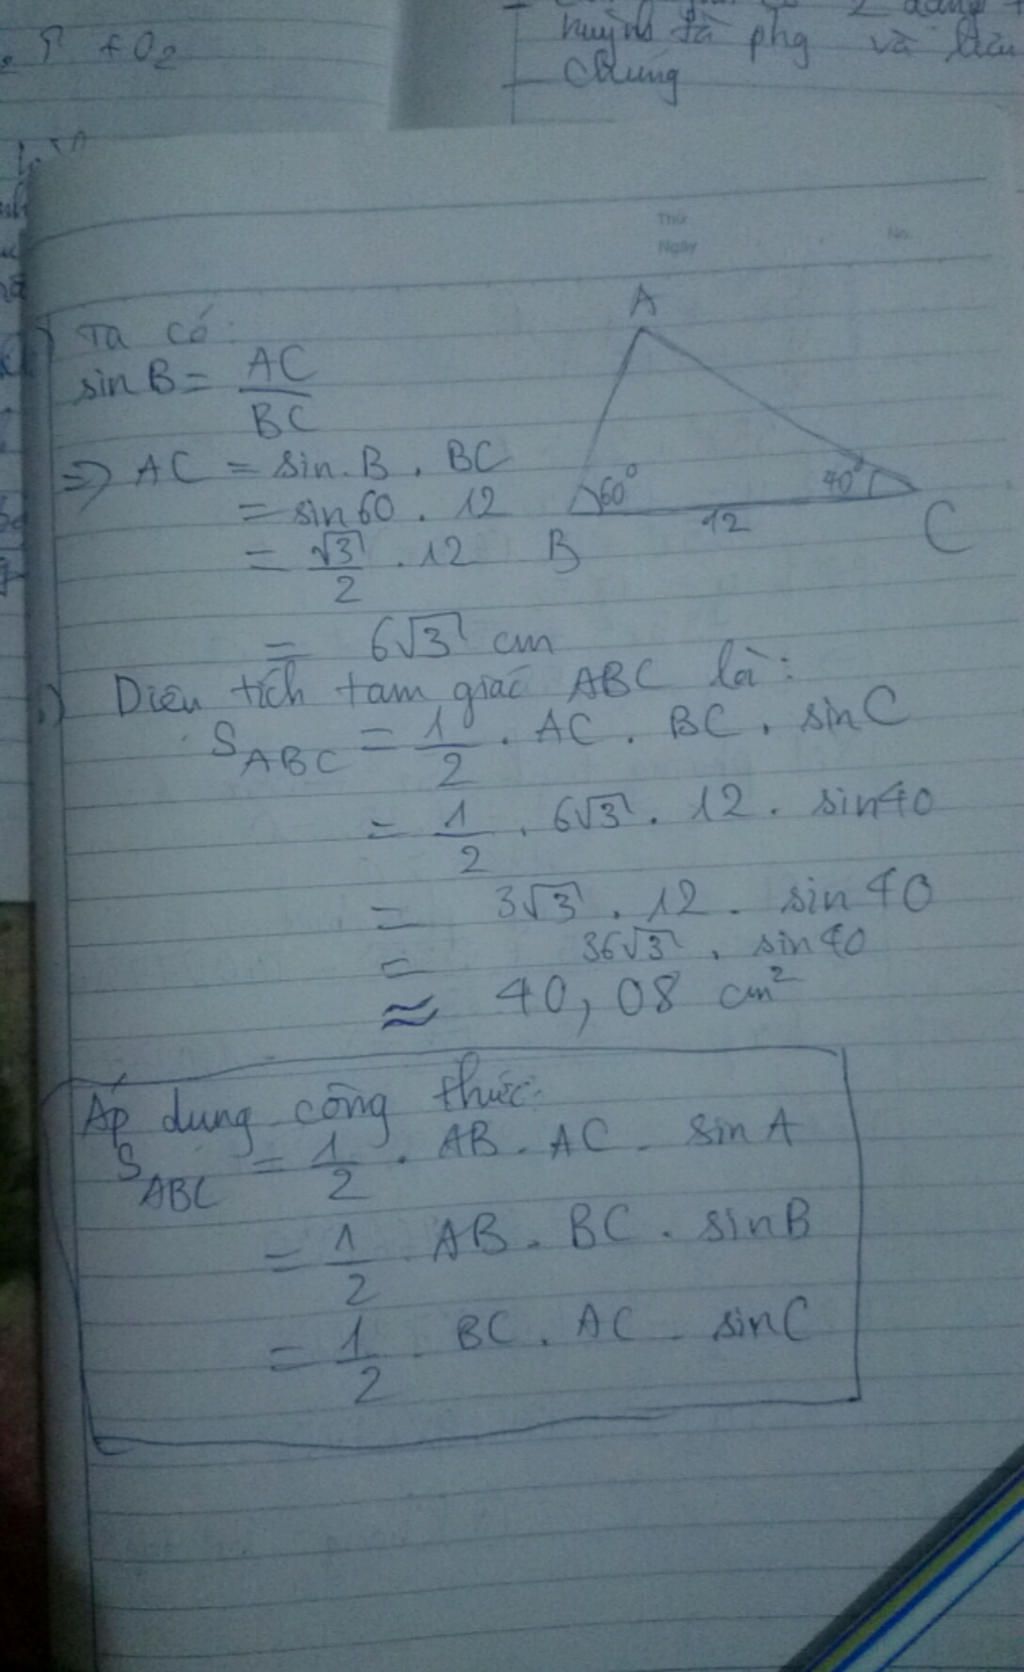 +O₂
huỳnh
phg và
chung
Thứ
Ngày
No.
Ta có:
sin B = AC/BC
=> AC = sin. B . BC
= sin 60 . 12
= √3/2 . 12
= 6√3 cm
A
60°
40°
12
B
C
Diện tích tam giác ABC là:
S_ABC = 1/2 . AC . BC . sin C
= 1/2 . 6√3 . 12 . sin 40
= 3√3 . 12 . sin 40
= 36√3 . sin 40
≈ 40,08 cm²
Áp dụng công thức:
S_ABC = 1/2 . AB . AC . sin A
= 1/2 . AB . BC . sin B
= 1/2 . BC . AC . sin C